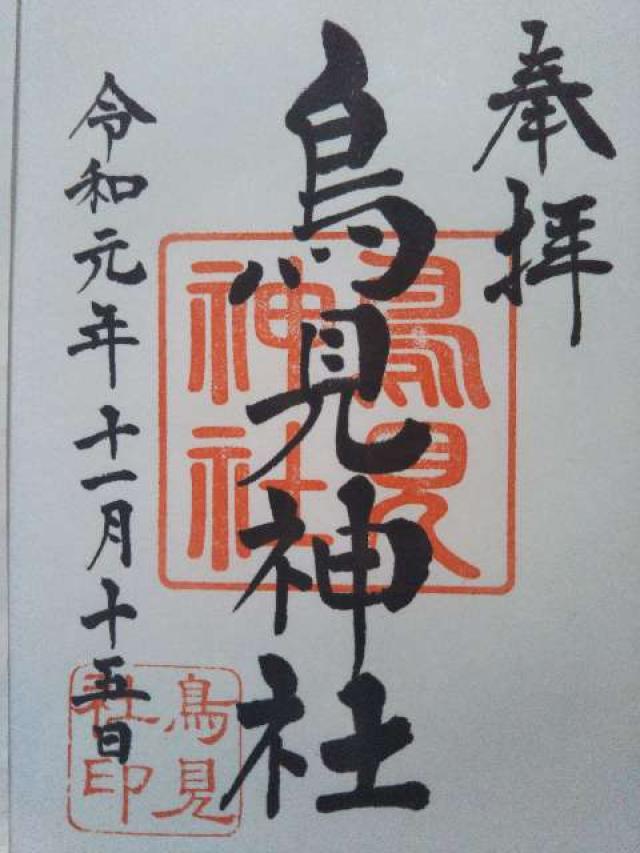 奉拝
鳥見神社
令和元年十一月十五日
鳥見
神社
鳥見
社印